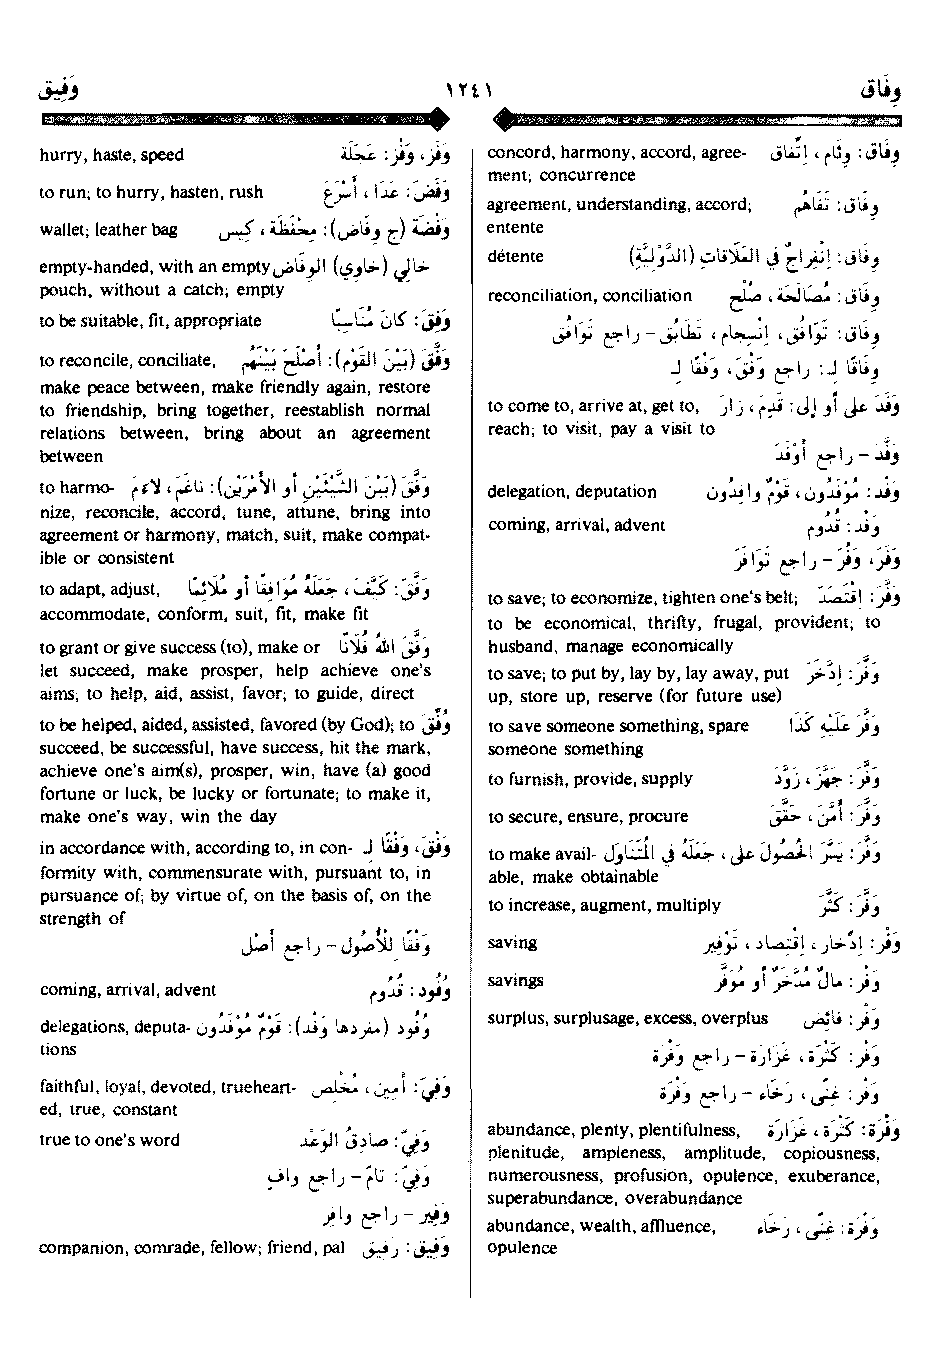 وِفَاق ١٢٤١ وَفِيق
وِفَاق: وِئَام، اِتِّفَاق concord, harmony, accord, agree-
ment; concurrence
وِفَاق: تَفَاهُم agreement, understanding, accord;
entente
وِفَاق: اِنْفِرَاجٌ في العَلَاقَاتِ (الدَّوْلِيَّةِ) détente
وِفَاق: مُصَالَحَة، صُلْح reconciliation, conciliation
وِفَاق: تَوَافُق، اِنْسِجَام، تَطَابُق – راجع تَوَافُق
وِفَاقًا لِـ: راجع وَفْقَ، وَفْقًا لِـ
وَفَدَ على أو إلى: قَدِمَ، زَارَ to come to, arrive at, get to,
reach; to visit, pay a visit to
وَفَّدَ – راجع أَوْفَدَ
وَفْد: مُوْفَدُون، قَوْمٌ وافِدُون delegation, deputation
وَفْد: قُدُوم coming, arrival, advent
وَفَرَ، وَفُرَ – راجع تَوَافَرَ
وَفَّرَ: اِقْتَصَدَ to save; to economize, tighten one's belt;
to be economical, thrifty, frugal, provident; to
husband, manage economically
وَفَّرَ: اِدَّخَرَ to save; to put by, lay by, lay away, put
up, store up, reserve (for future use)
وَفَّرَ عَلَيْهِ كَذَا to save someone something, spare
someone something
وَفَّرَ: جَهَّزَ، زَوَّدَ to furnish, provide, supply
وَفَّرَ: أَمَّنَ، حَقَّقَ to secure, ensure, procure
وَفَّرَ: يَسَّرَ الحُصُولَ على، جَعَلَهُ في المُتَنَاوَل to make avail-
able, make obtainable
وَفَّرَ: كَثَّرَ to increase, augment, multiply
وَفْر: اِدِّخار، اِقْتِصاد، تَوْفِير saving
وَفْر: مَالٌ مُدَّخَرٌ أو مُوَفَّر savings
وَفْر: فَائِض surplus, surplusage, excess, overplus
وَفْر: كَثْرَة، غَزَارَة – راجع وَفْرَة
وَفْر: غِنًى، رَخَاء – راجع وَفْرَة
وَفْرَة: كَثْرَة، غَزَارَة abundance, plenty, plentifulness,
plenitude, ampleness, amplitude, copiousness,
numerousness, profusion, opulence, exuberance,
superabundance, overabundance
وَفْرَة: غِنًى، رَخَاء abundance, wealth, affluence,
opulence
وَفْز، وَفَز: عَجَلَة hurry, haste, speed
وَفَضَ: عَدَا، أَسْرَعَ to run; to hurry, hasten, rush
وَفْضَة (ج وِفَاض): مِحْفَظَة، كِيس wallet; leather bag
خالِي (خاوِي) الوِفَاض empty-handed, with an empty
pouch, without a catch; empty
وَفِقَ: كانَ مُنَاسِبًا to be suitable, fit, appropriate
وَفَّقَ (بَيْنَ القَوْمِ): أَصْلَحَ بَيْنَهُم to reconcile, conciliate,
make peace between, make friendly again, restore
to friendship, bring together, reestablish normal
relations between, bring about an agreement
between
وَفَّقَ (بَيْنَ الشَّيْئَيْنِ أو الأَمْرَيْنِ): ناغَمَ، لاءَمَ to harmo-
nize, reconcile, accord, tune, attune, bring into
agreement or harmony, match, suit, make compat-
ible or consistent
وَفَّقَ: كَيَّفَ، جَعَلَهُ مُوَافِقًا أو مُلَائِمًا to adapt, adjust,
accommodate, conform, suit, fit, make fit
وَفَّقَ اللهُ فُلَانًا to grant or give success (to), make or
let succeed, make prosper, help achieve one's
aims; to help, aid, assist, favor; to guide, direct
وُفِّقَ to be helped, aided, assisted, favored (by God); to
succeed, be successful, have success, hit the mark,
achieve one's aim(s), prosper, win, have (a) good
fortune or luck, be lucky or fortunate; to make it,
make one's way, win the day
وَفْقَ، وَفْقًا لِـ in accordance with, according to, in con-
formity with, commensurate with, pursuant to, in
pursuance of; by virtue of, on the basis of, on the
strength of
وَفْقًا لِلْأُصُول – راجع أَصْل
وُفُود: قُدُوم coming, arrival, advent
وُفُود (مفردها وَفْد): قَوْمٌ مُوْفَدُون delegations, deputa-
tions
وَفِيّ: أَمِين، مُخْلِص faithful, loyal, devoted, trueheart-
ed, true, constant
وَفِيّ: صادِقُ الوَعْد true to one's word
وَفِيّ: تَامّ – راجع وافٍ
وَفِير – راجع وافِر
وَفِيق: رَفِيق companion, comrade, fellow; friend, pal